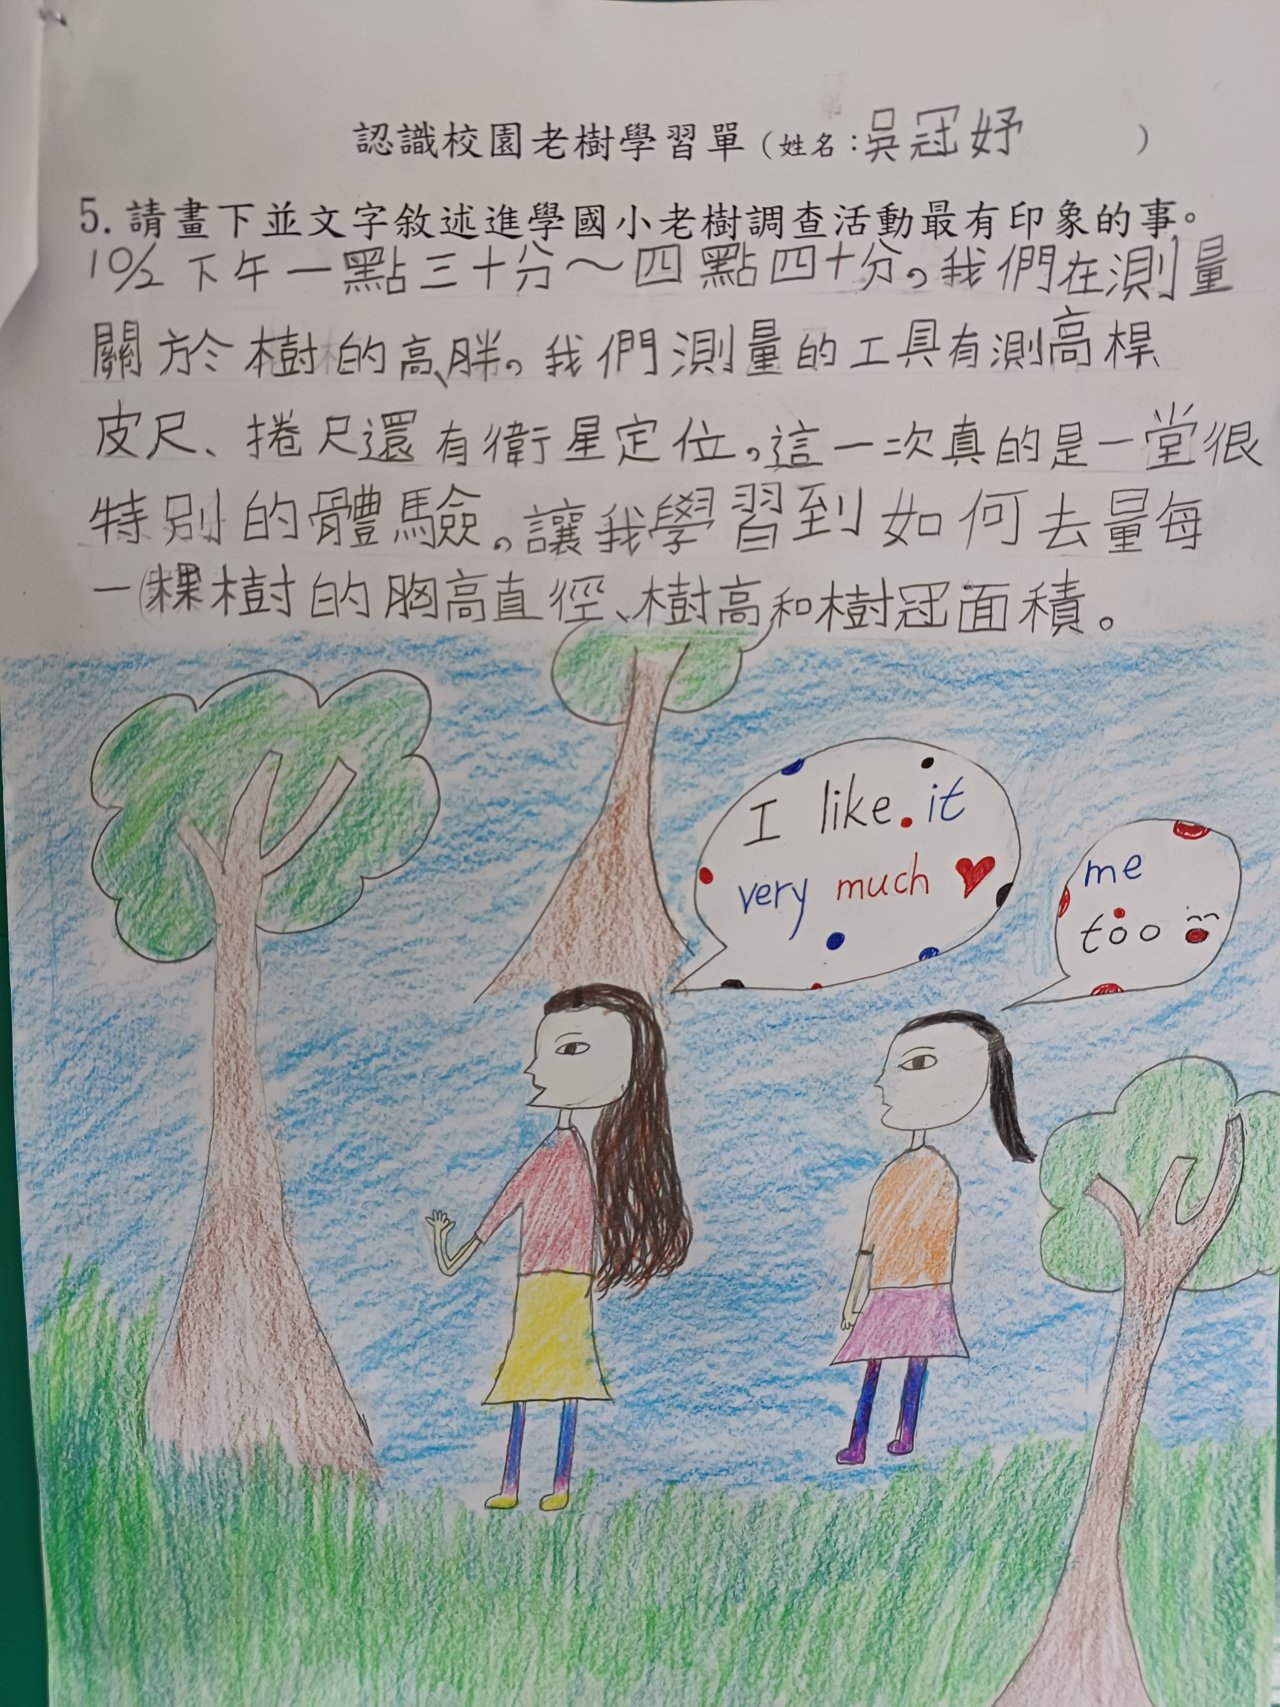 認識校園老樹學習單（姓名：吳冠妤　　　）
5.請畫下並文字敘述進學國小老樹調查活動最有印象的事。
10/2下午一點三十分～四點四十分，我們在測量
關於樹的高、胖，我們測量的工具有測高桿
皮尺、捲尺還有衛星定位，這一次真的是一堂很
特別的體驗，讓我學習到如何去量每
一棵樹的胸高直徑、樹高和樹冠面積。
I like it
very much
me
too